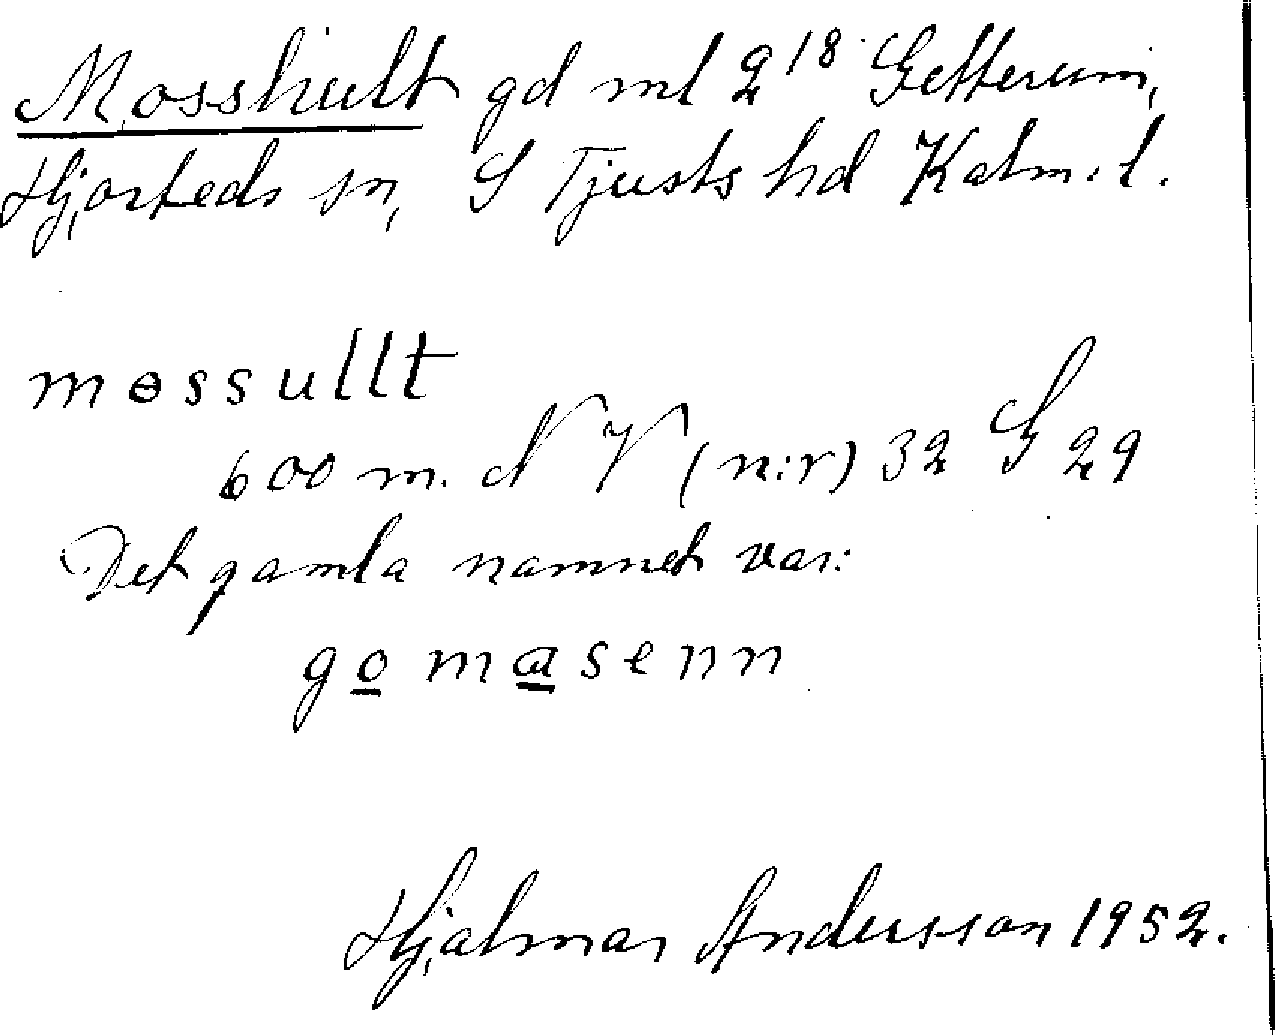 Mosshult gd ml 2¹⁸ Getterum,
Hjorteds sn, S Tjusts hd Kalm. l.
møssullt
600 m. NV (n:r) 32 G 29
Det gamla namnet var:
gomasenn
Hjalmar Andersson 1952.